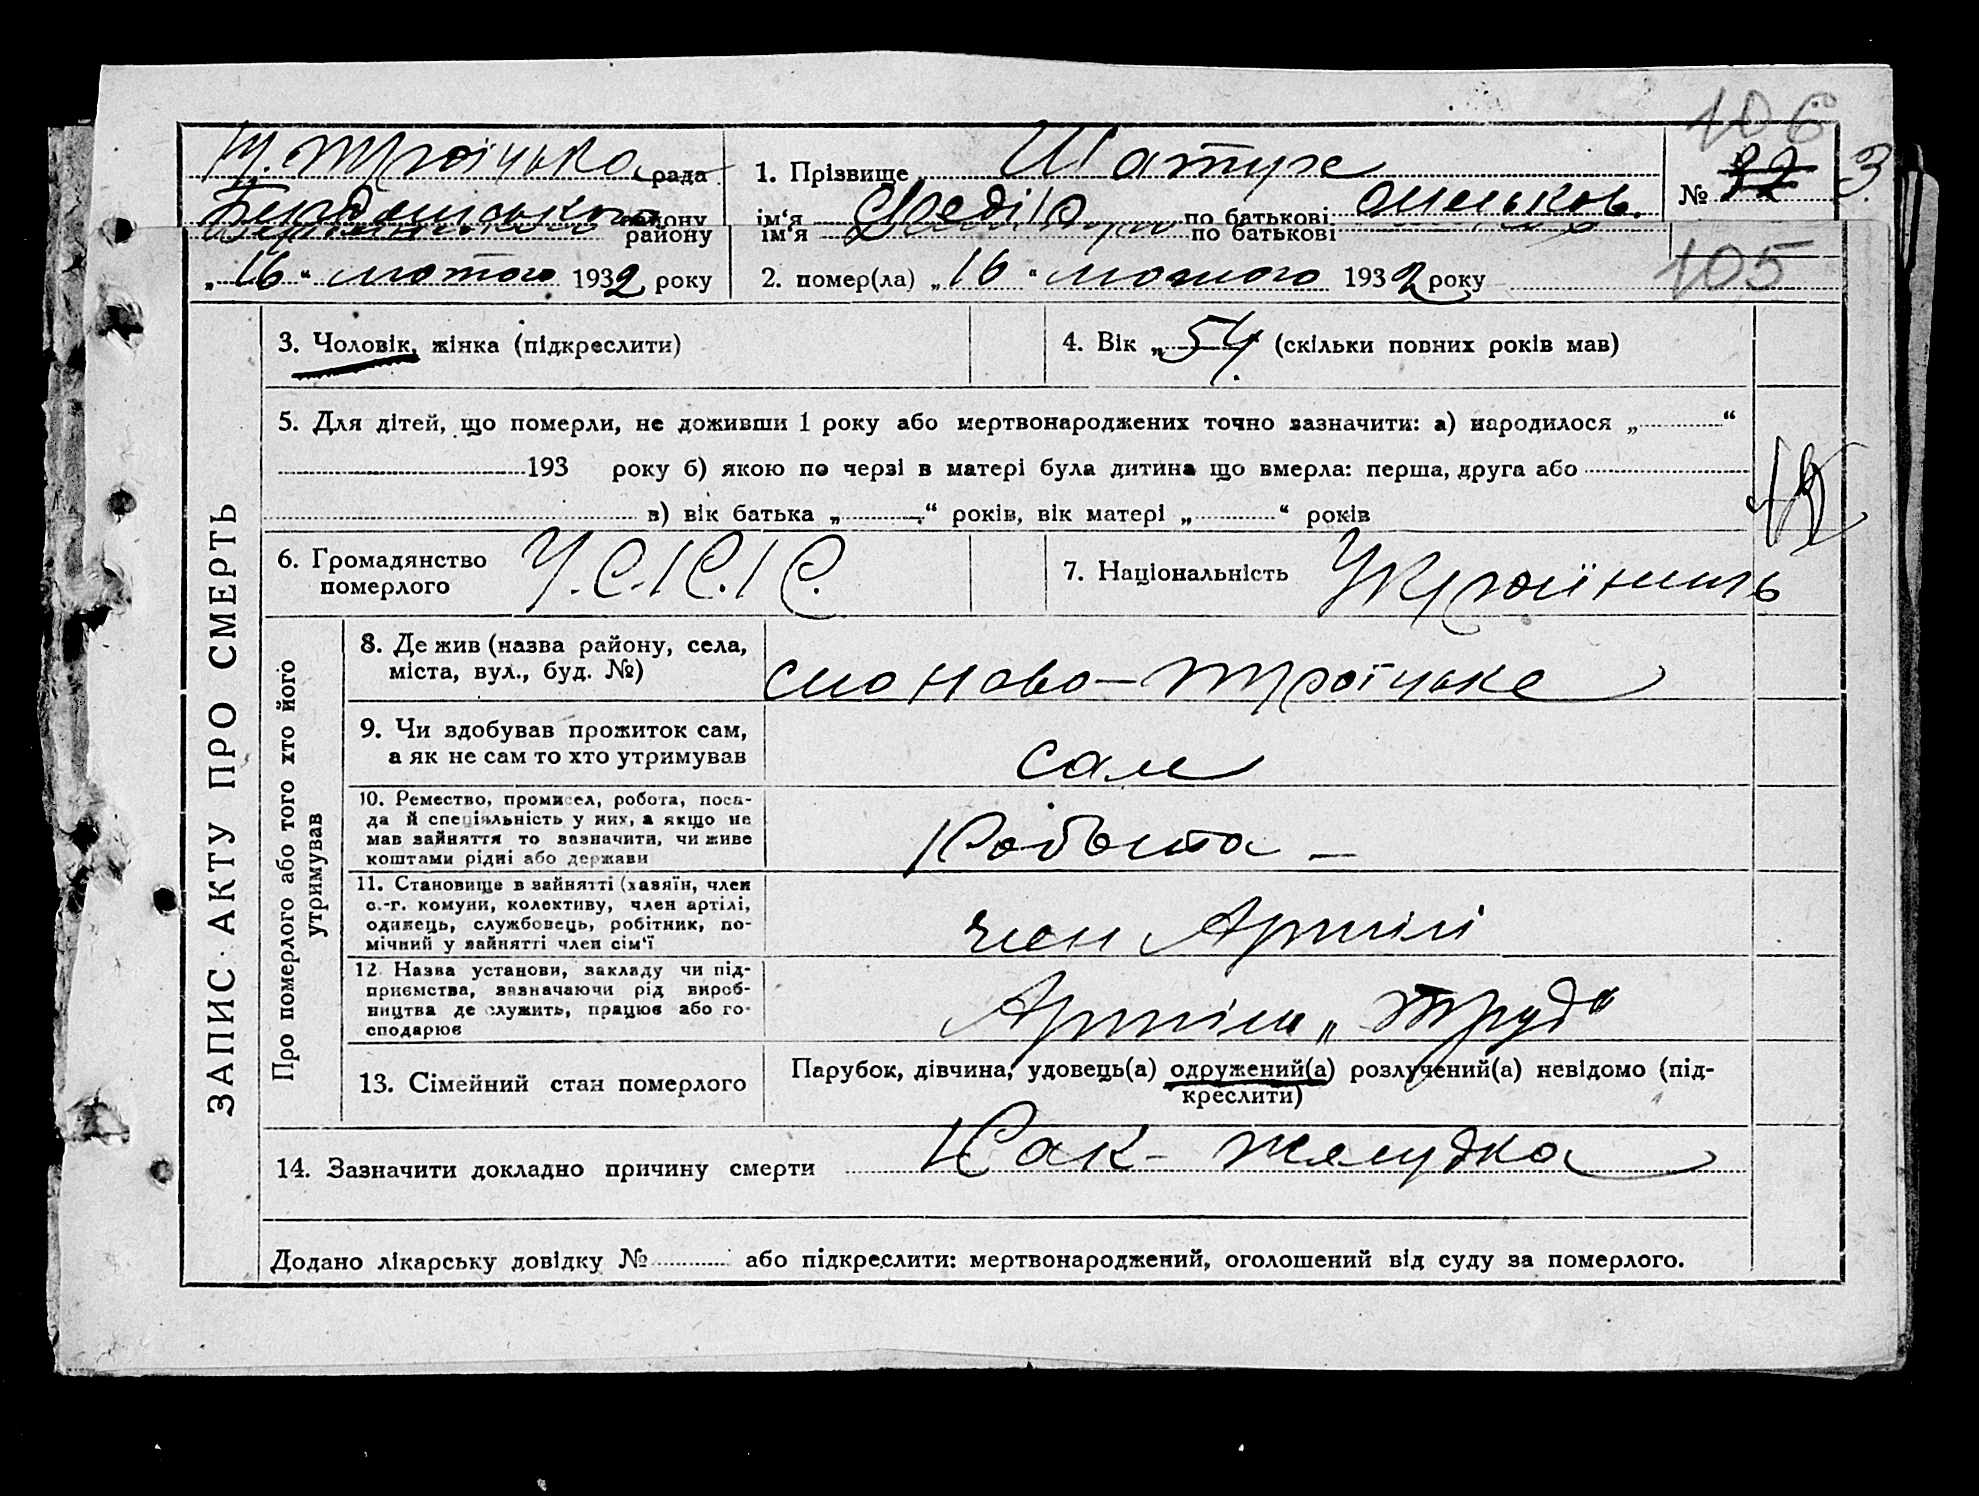 106
Н. Троїцька рада
1. Прізвище Шатух
№ 32 3
Бердянського району
ім'я Федір по батькові Омельков.
району
ім'я по батькові
105
„16“ лютого 1932 року
2. помер(ла) „16“ лютого 1932 року
3. Чоловік, жінка (підкреслити)
4. Вік „54 (скільки повних років мав)
5. Для дітей, що померли, не доживши 1 року або мертвонароджених точно зазначити: а) народилося „ “
193 року б) якою по черзі в матері була дитина що вмерла: перша, друга або
в) вік батька „ “ років, вік матері „ “ років
6. Громадянство
померлого
У.С.Р.Р.
7. Національність
Українець
ЗАПИС АКТУ ПРО СМЕРТЬ
Про померлого або того хто його
утримував
8. Де жив (назва району, села,
міста, вул., буд. №)
село Ново-Троїцьке
9. Чи здобував прожиток сам,
а як не сам то хто утримував
сам
10. Ремество, промисел, робота, поса-
да й спеціяльність у них, а якщо не
мав зайняття то зазначити, чи живе
коштами рідні або держави
Робота -
11. Становище в зайнятті (хазяїн, член
с.-г. комуни, колективу, член артілі,
одинець, службовець, робітник, по-
мічний у зайнятті член сім'ї
член Артілі
12. Назва установи, закладу чи під-
приємства, зазначаючи рід вироб-
ництва де служить, працює або го-
сподарює
Артіль „Труд“
13. Сімейний стан померлого
Парубок, дівчина, удовець(а) одружений(а) розлучений(а) невідомо (під-
креслити)
14. Зазначити докладно причину смерти
Рак- желудка
Додано лікарську довідку № або підкреслити: мертвонароджений, оголошений від суду за померлого.